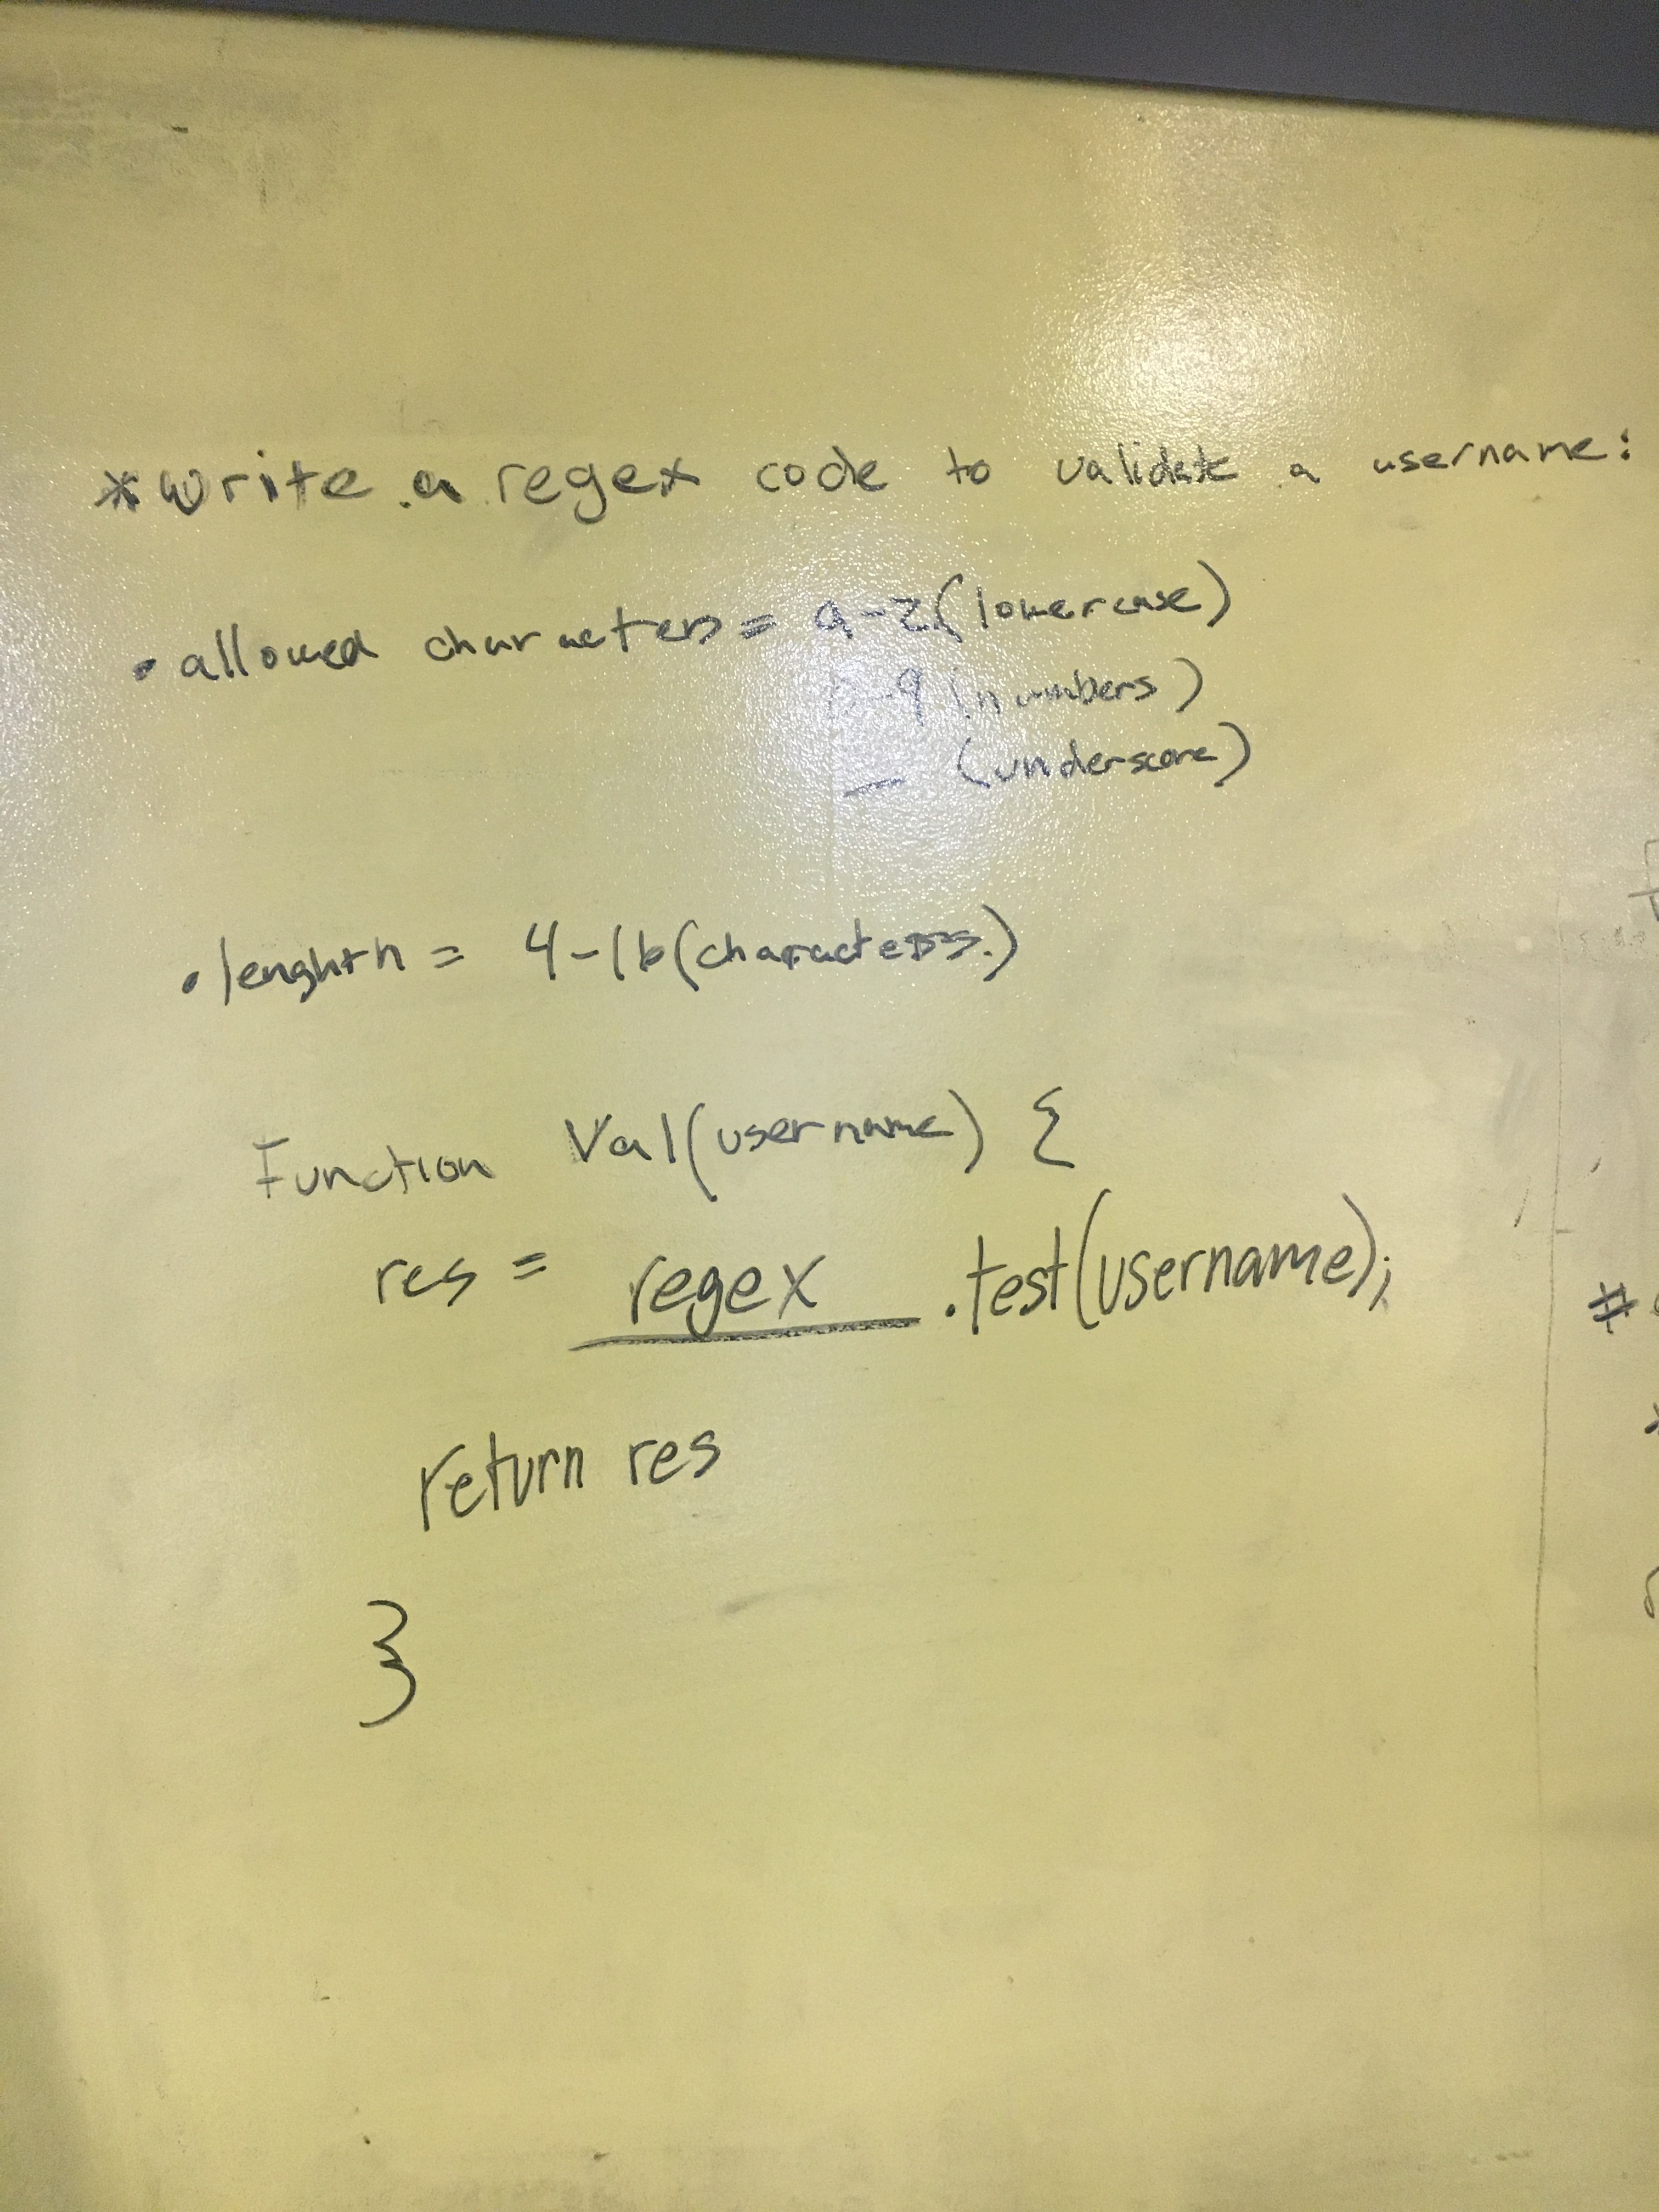 *write a regex code to validate a username:
• allowed characters = a-z (lowercase)
0-9 (numbers)
_ (underscore)
• lenghth = 4-16 (characters.)
Function Val(username) {
res = regex .test(username);
return res
}
#